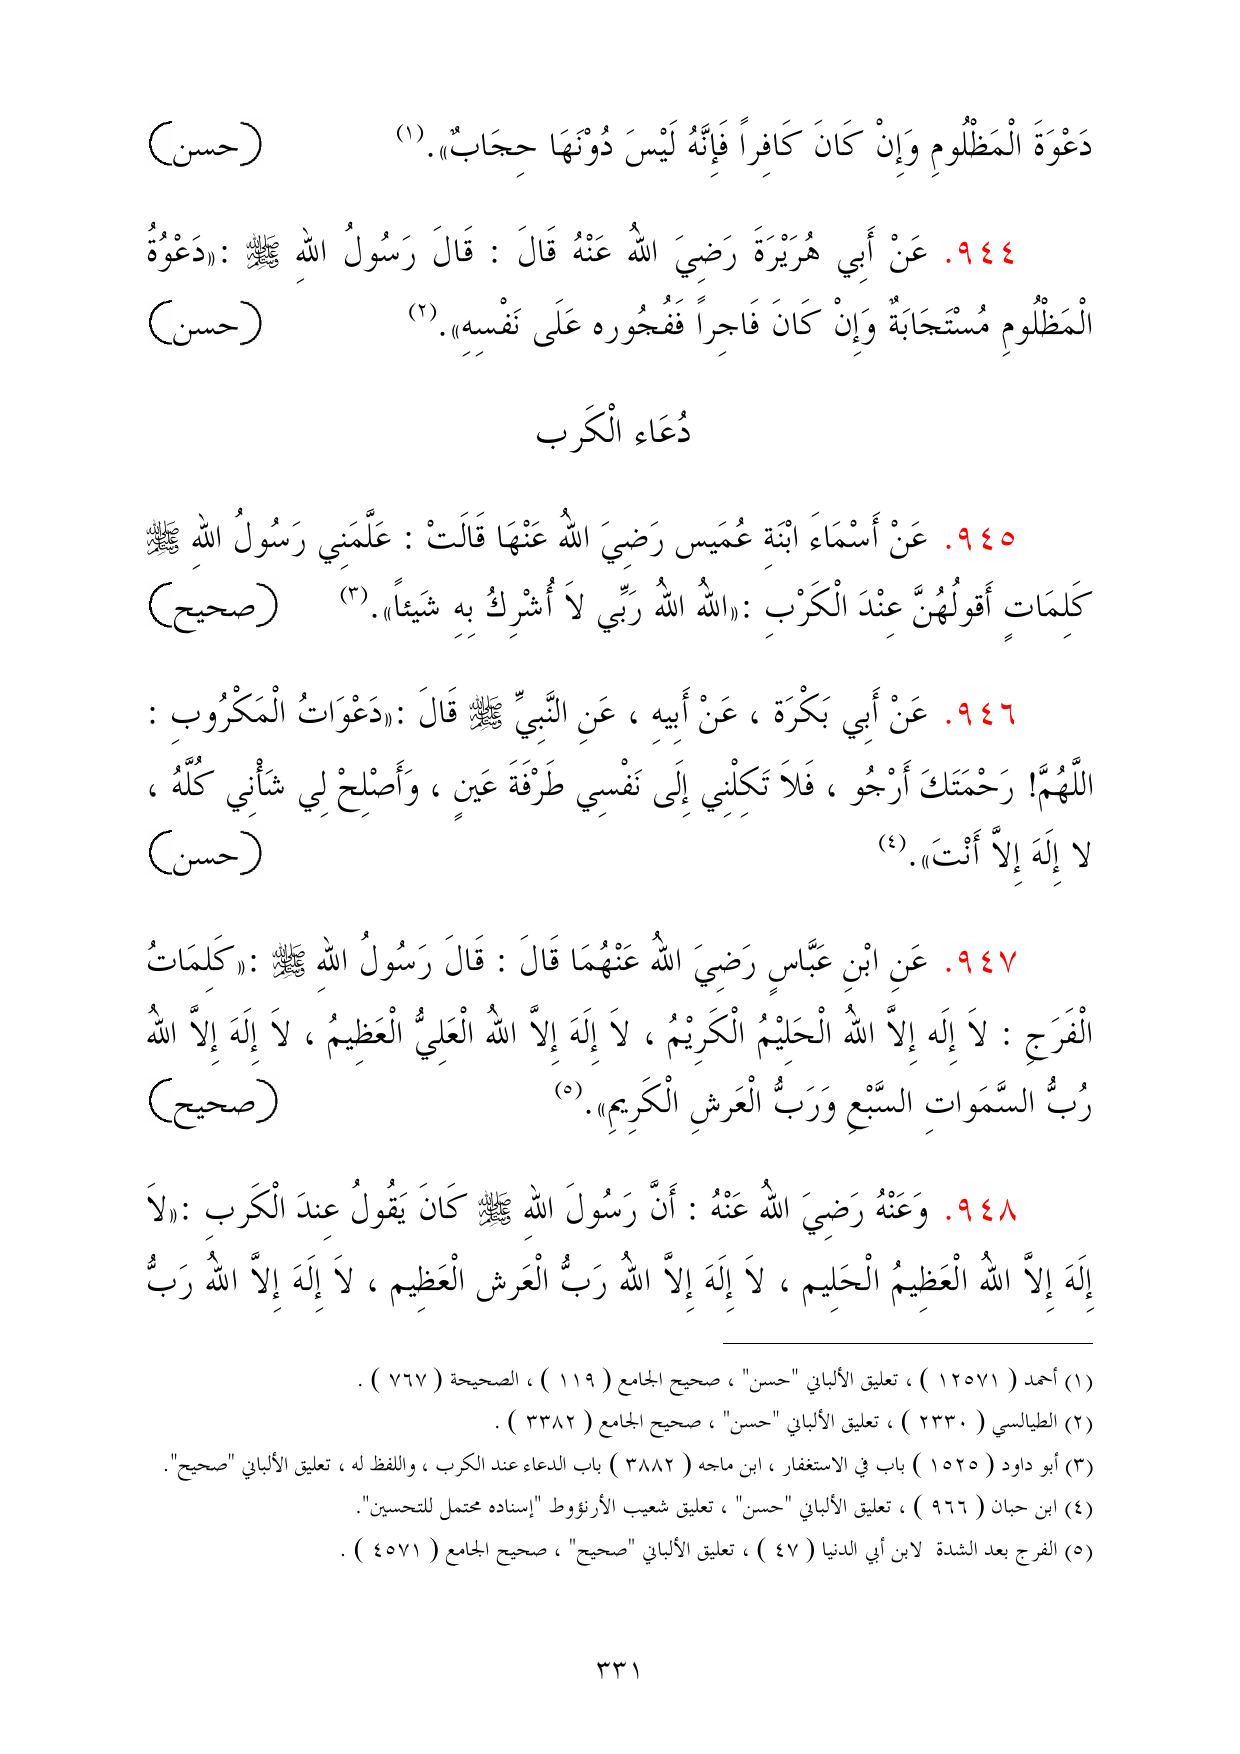 دَعْوَةَ الْمَظْلُومِ وَإِنْ كَانَ كَافِراً فَإِنَّهُ لَيْسَ دُوْنَهَا حِجَابٌ».(١) (حسن)
٩٤٤. عَنْ أَبِي هُرَيْرَةَ رَضِيَ اللهُ عَنْهُ قَالَ : قَالَ رَسُولُ اللهِ ﷺ :«دَعْوُةُ
الْمَظْلُومِ مُسْتَجَابَةٌ وَإِنْ كَانَ فَاجِراً فَفُجُوره عَلَى نَفْسِهِ».(٢) (حسن)
دُعَاء الْكَرب
٩٤٥. عَنْ أَسْمَاءَ ابْنَةِ عُمَيس رَضِيَ اللهُ عَنْهَا قَالَتْ : عَلَّمَنِي رَسُولُ اللهِ ﷺ
كَلِمَاتٍ أَقولُهُنَّ عِنْدَ الْكَرْبِ :«اللهُ اللهُ رَبِّي لاَ أُشْرِكُ بِهِ شَيئاً».(٣) (صحيح)
٩٤٦. عَنْ أَبِي بَكْرَة ، عَنْ أَبِيهِ ، عَنِ النَّبِيِّ ﷺ قَالَ :«دَعْوَاتُ الْمَكْرُوبِ :
اللَّهُمَّ! رَحْمَتَكَ أَرْجُو ، فَلاَ تَكِلْنِي إِلَى نَفْسِي طَرْفَةَ عَينٍ ، وَأَصْلِحْ لِي شَأْنِي كُلَّهُ ،
لا إِلَهَ إِلاَّ أَنْتَ».(٤) (حسن)
٩٤٧. عَنِ ابْنِ عَبَّاسٍ رَضِيَ اللهُ عَنْهُمَا قَالَ : قَالَ رَسُولُ اللهِ ﷺ :«كَلِمَاتُ
الْفَرَجِ : لاَ إِلَه إِلاَّ اللهُ الْحَلِيْمُ الْكَرِيْمُ ، لاَ إِلَهَ إِلاَّ اللهُ الْعَلِيُّ الْعَظِيمُ ، لاَ إِلَهَ إِلاَّ اللهُ
رُبُّ السَّمَواتِ السَّبْعِ وَرَبُّ الْعَرشِ الْكَرِيمِ».(٥) (صحيح)
٩٤٨. وَعَنْهُ رَضِيَ اللهُ عَنْهُ : أَنَّ رَسُولَ اللهِ ﷺ كَانَ يَقُولُ عِندَ الْكَربِ :«لاَ
إِلَهَ إِلاَّ اللهُ الْعَظِيمُ الْحَلِيم ، لاَ إِلَهَ إِلاَّ اللهُ رَبُّ الْعَرش الْعَظِيم ، لاَ إِلَهَ إِلاَّ اللهُ رَبُّ
(١) أحمد ( ١٢٥٧١ ) ، تعليق الألباني "حسن" ، صحيح الجامع ( ١١٩ ) ، الصحيحة ( ٧٦٧ ) .
(٢) الطيالسي ( ٢٣٣٠ ) ، تعليق الألباني "حسن" ، صحيح الجامع ( ٣٣٨٢ ) .
(٣) أبو داود ( ١٥٢٥ ) باب في الاستغفار ، ابن ماجه ( ٣٨٨٢ ) باب الدعاء عند الكرب ، واللفظ له ، تعليق الألباني "صحيح".
(٤) ابن حبان ( ٩٦٦ ) ، تعليق الألباني "حسن" ، تعليق شعيب الأرنؤوط "إسناده محتمل للتحسين".
(٥) الفرج بعد الشدة لابن أبي الدنيا ( ٤٧ ) ، تعليق الألباني "صحيح" ، صحيح الجامع ( ٤٥٧١ ) .
٣٣١